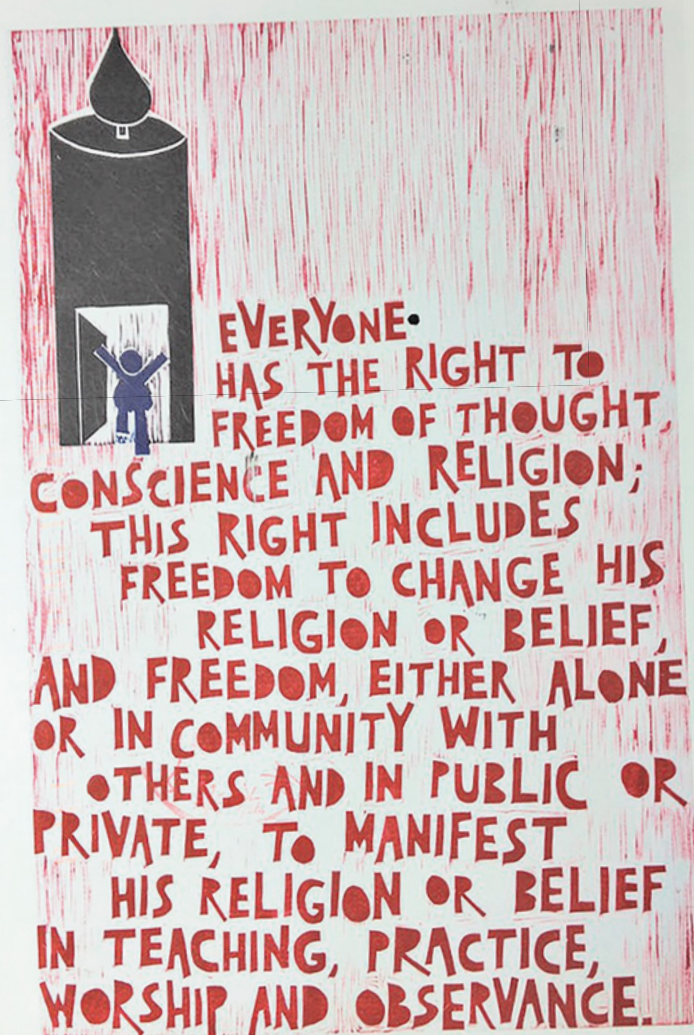 EVERYONE
HAS THE RIGHT TO
FREEDOM OF THOUGHT,
CONSCIENCE AND RELIGION;
THIS RIGHT INCLUDES
FREEDOM TO CHANGE HIS
RELIGION OR BELIEF,
AND FREEDOM, EITHER ALONE
OR IN COMMUNITY WITH
OTHERS AND IN PUBLIC OR
PRIVATE, TO MANIFEST
HIS RELIGION OR BELIEF
IN TEACHING, PRACTICE,
WORSHIP AND OBSERVANCE.